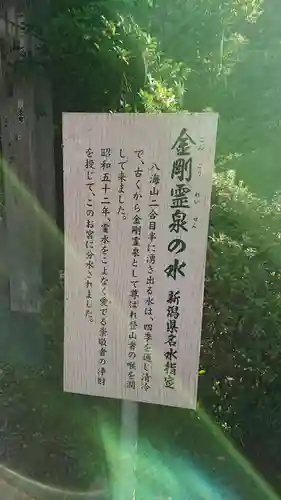 金剛霊泉の水
こんごうれいせん
新潟県名水指定
八海山二合目半に湧き出る水は、四季を通し清冷
で、古くから金剛霊泉として尊ばれ登山者の喉を潤
して来ました。
昭和五十二年、霊水をこよなく愛でる崇敬者の浄財
を投じて、このお宮に分水されました。